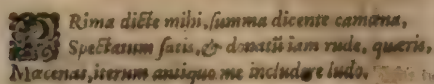 PRima dicte mihi, ſumma dicente camœna,
Spectatum ſatis, & donatū iam rude, quæris,
Mæcenas, iterum antiquo me includere ludo,